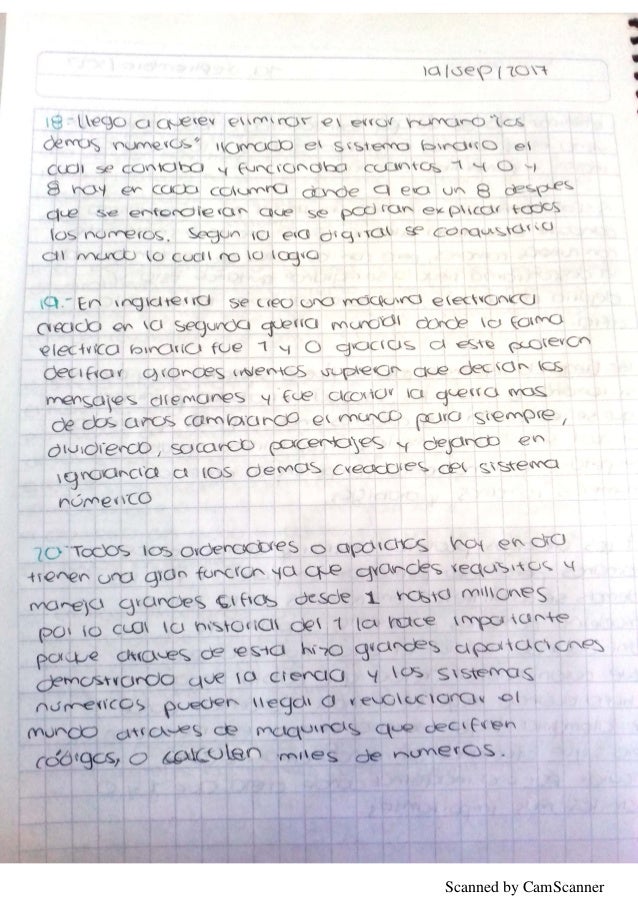 19/sep/2017
18-llego a querer eliminar el error humano "los
demas numeros" llamado el sistema binario el
cual se contaba y funcionaba cuantos 1 y 0 y
8 hay en cada columna donde 9 era un 8 despues
que se entendieran que se podian explicar todos
los numeros. Segun la era digital se conquistaria
al mundo lo cual no lo logro
19.-En inglaterra se creo una maquina electronica
creada en la segunda guerra mundial donde la forma
electrica binaria fue 1 y 0 gracias a este pudieron
decifrar grandes inventos supieron que decian los
mensajes alemanes y fue acortar la guerra mas
de dos años cambiando el mundo para siempre,
dividiendo, sacando porcentajes y dejando en
ignorancia a los demas creadores del sistema
númerico
20-Todos los ordenadores o aparatos hoy en dia
tienen una gran funcion ya que grandes requisitos y
maneja grandes cifras desde 1 hasta millones
por lo cual la historial del 1 la hace importante
porque atraves de esta hizo grandes aportaciones
demostrando que la ciencia y los sistemas
numericos pueden llegar a revolucionar el
mundo atraves de maquinas que decifren
códigos, o calculen miles de numeros.
Scanned by CamScanner